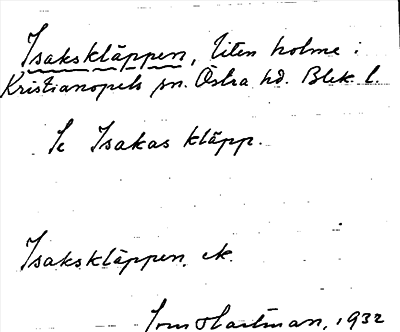 Isakskläppen, liten holme i
Kristianopels sn. Östra hd. Blek. l.
Se Isakas kläpp.
Isakskläppen. ek.
Hartman, 1932